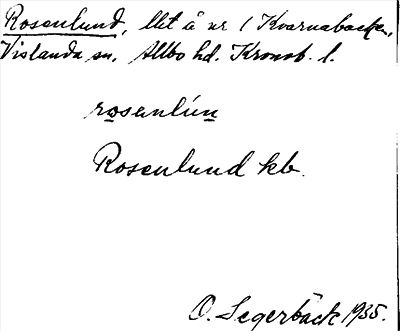 Rosenlund, llt å nr 1 Kvarnabacken,
Vislanda sn. Allbo hd. Kronob. l.
rosenlún
Rosenlund kb.
O. Segerbäck 1935.